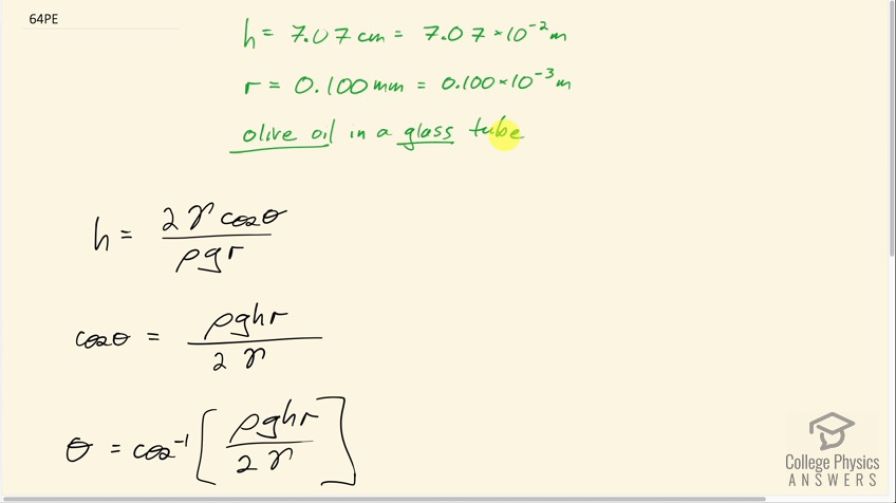 64PE
h = 7.07 cm = 7.07 × 10⁻² m
r = 0.100 mm = 0.100 × 10⁻³ m
olive oil in a glass tube
h = 2 γ cos θ / ρ g r
cos θ = ρ g h r / 2 γ
θ = cos⁻¹ [ ρ g h r / 2 γ ]
College Physics
ANSWERS